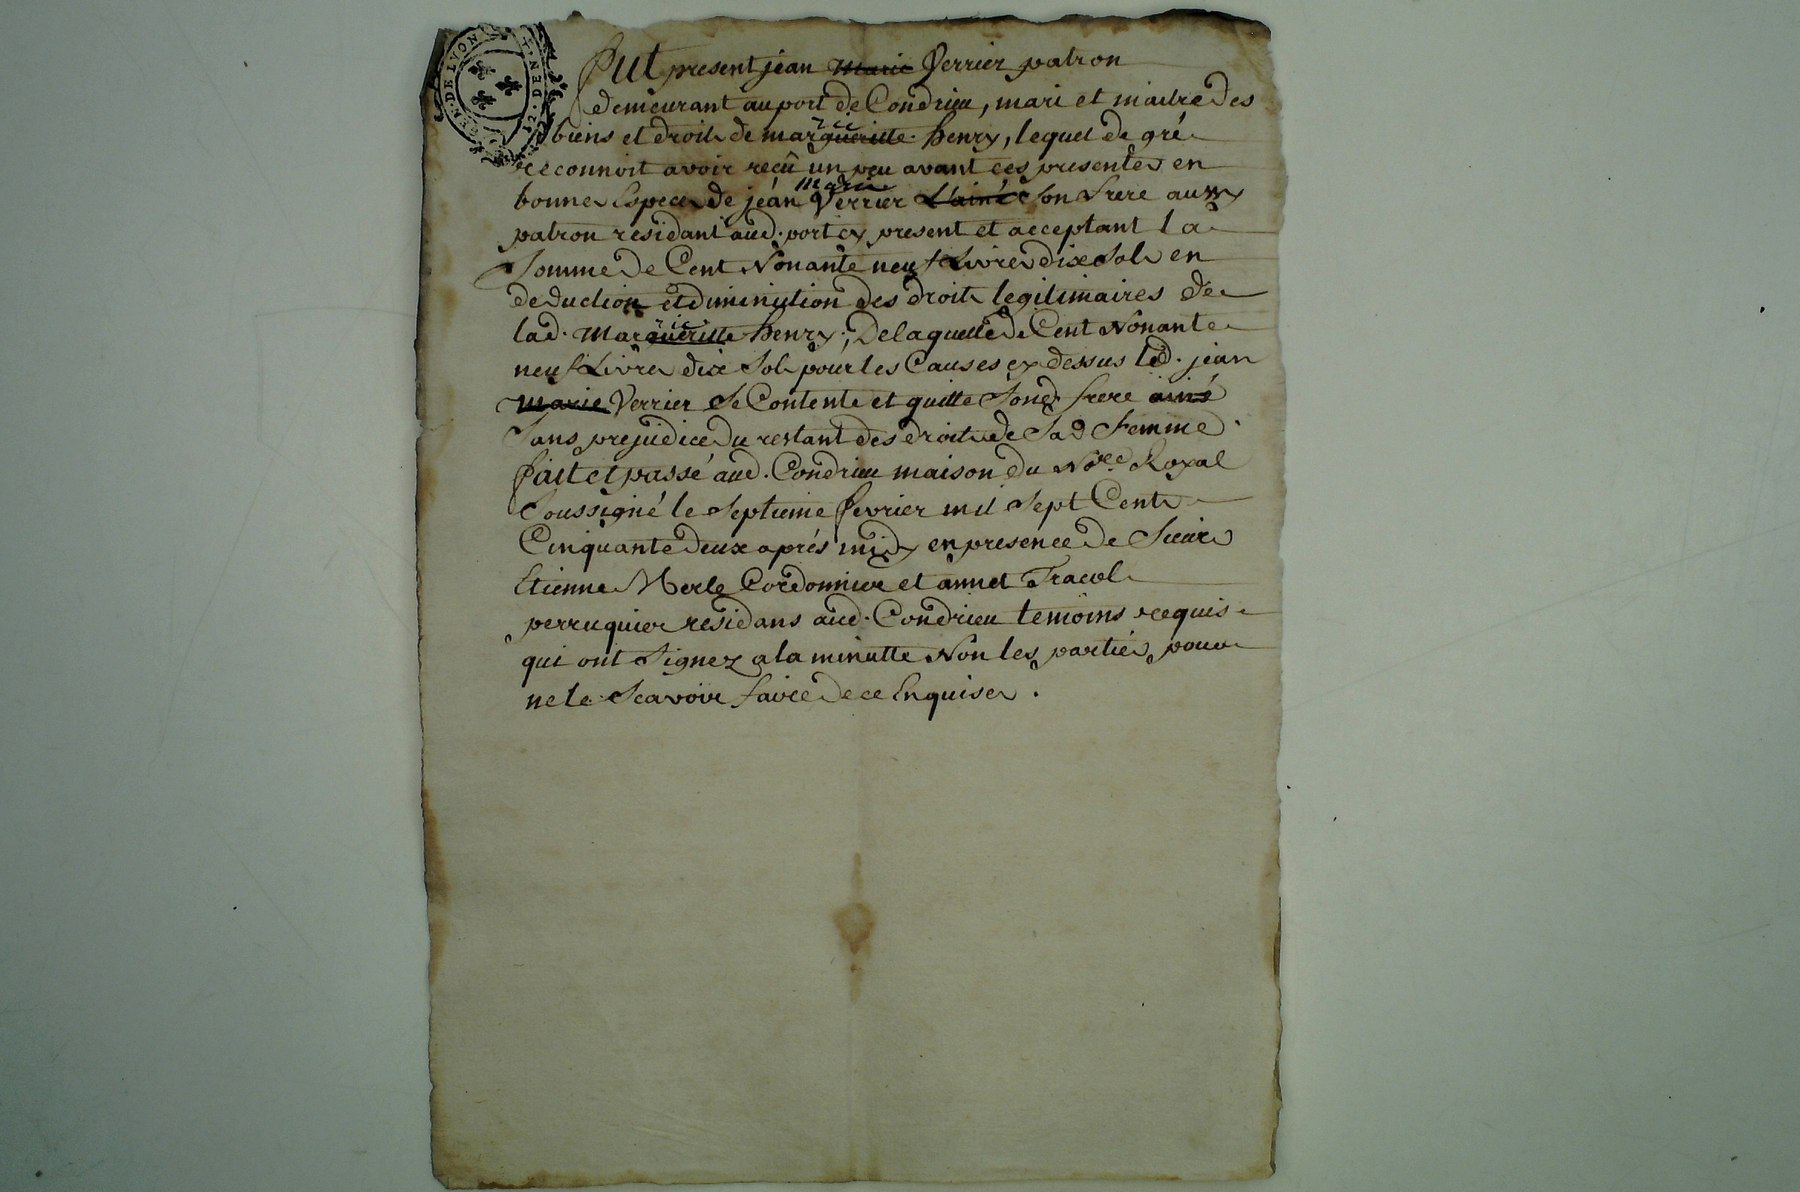 GEN. DE LYON
Fut present jean Marie Verrier patron
demeurant au port de Condrieu, mari et maitre des
biens et droits de margueritte henry, lequel de gré
reconnoit avoir reçû un peu avant ces presentes en
marie
bonnes Especes de jéan Verrier L'ainé son frere aussy
patron residant aud. port cy present et acceptant la
Somme de Cent Nonante neuf Livres dix Sols en
deduction et diminution des droits legitimaires de
lad. Margueritte henry; De laquelle de Cent Nonante
neuf Livres dix Sols pour les Causes cy dessus led. jean
Marie Verrier Se Contente et quitte Sond. frere ainé
Sans prejudice du restant des droits de Sad femme.
fait et passé aud. Condrieu maison du No.re Royal
Soussigné le Septieme fevrier mil Sept Cents
Cinquante deux aprés midy en presence de Sieurs
Etienne Merle Cordonnier et annet Tracol
perruquier residans aud. Condrieu temoins requis
qui ont Signez a la minutte Non les parties pour
ne le Scavoir faire de ce Enquises.